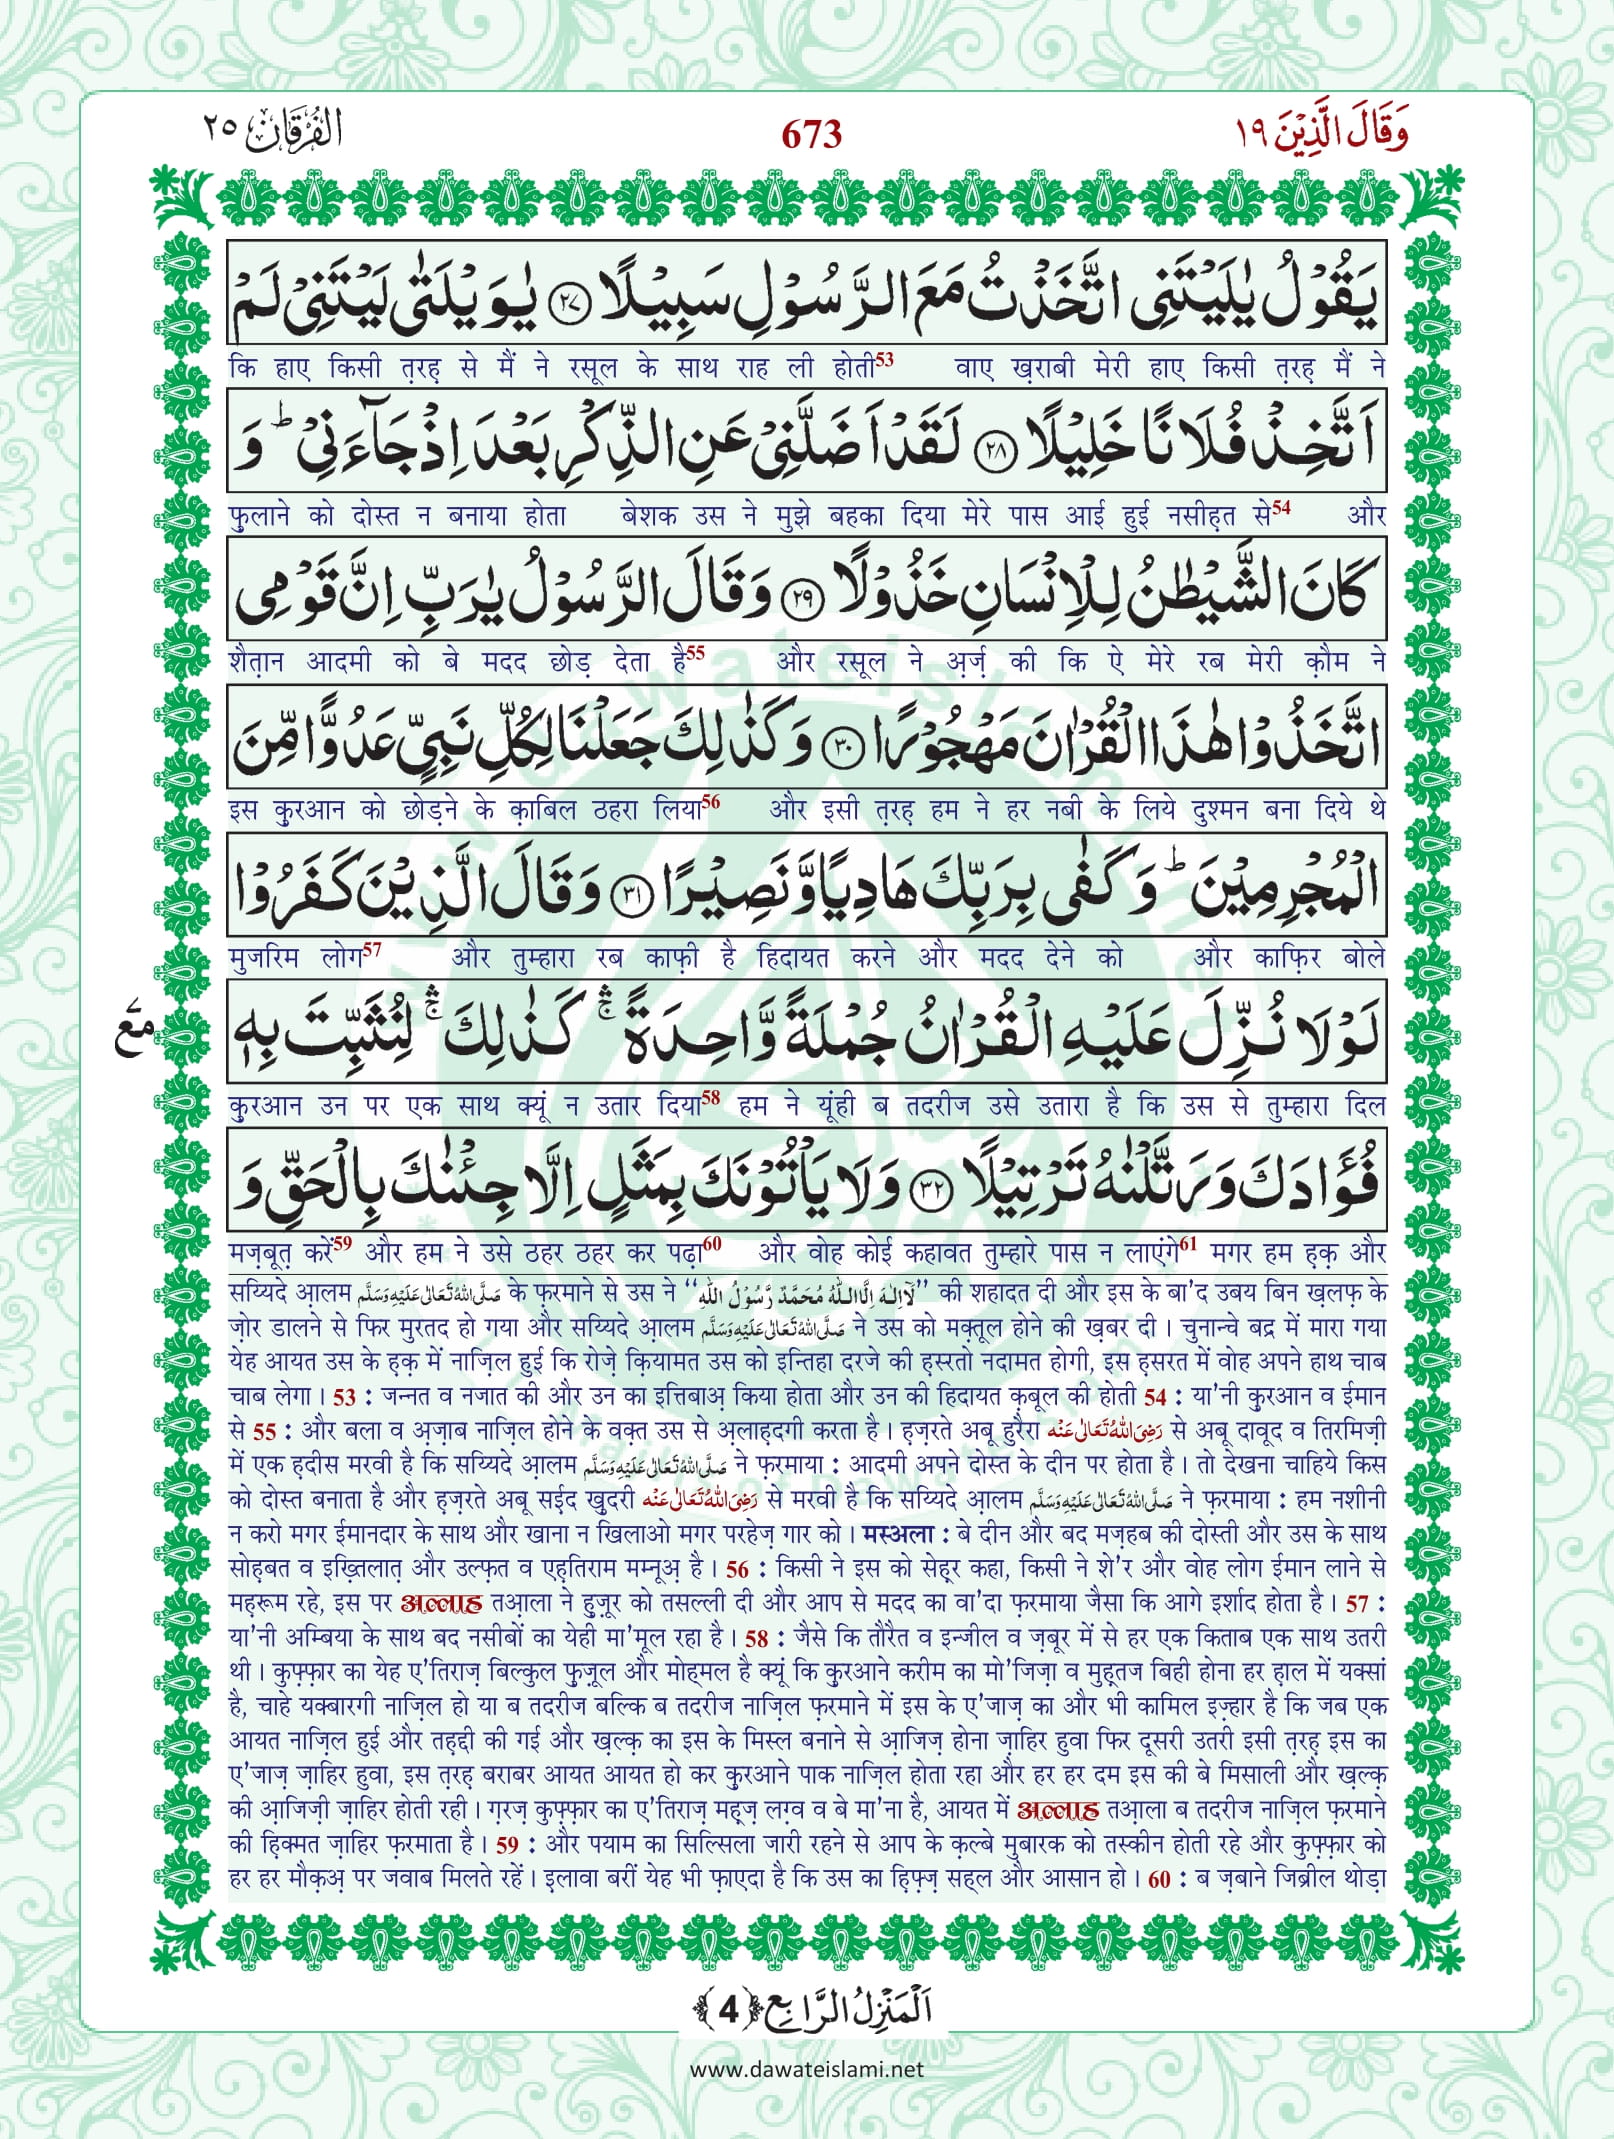 وَقَالَ الَّذِیْنَ ١٩ 673 الفُرقَان ٢٥
یَقُوْلُ یٰلَیْتَنِی اتَّخَذْتُ مَعَ الرَّسُوْلِ سَبِیْلًا ﴿٢٧﴾ یٰوَیْلَتٰی لَیْتَنِیْ لَمْ
कि हाए किसी त़रह़ से मैं ने रसूल के साथ राह ली होती53 वाए ख़राबी मेरी हाए किसी त़रह़ मैं ने
اَتَّخِذْ فُلَانًا خَلِیْلًا ﴿٢٨﴾ لَقَدْ اَضَلَّنِیْ عَنِ الذِّكْرِ بَعْدَ اِذْ جَآءَنِیْ ؕ وَ
फुलाने को दोस्त न बनाया होता बेशक उस ने मुझे बहका दिया मेरे पास आई हुई नसीह़त से54 और
كَانَ الشَّیْطٰنُ لِلْاِنْسَانِ خَذُوْلًا ﴿٢٩﴾ وَقَالَ الرَّسُوْلُ یٰرَبِّ اِنَّ قَوْمِی
शैत़ान आदमी को बे मदद छोड़ देता है55 और रसूल ने अ़र्ज़ की कि ऐ मेरे रब मेरी क़ौम ने
اتَّخَذُوْا هٰذَا الْقُرْاٰنَ مَهْجُوْرًا ﴿٣٠﴾ وَكَذٰلِكَ جَعَلْنَا لِكُلِّ نَبِیٍّ عَدُوًّا مِّنَ
इस क़ुरआन को छोड़ने के क़ाबिल ठहरा लिया56 और इसी त़रह़ हम ने हर नबी के लिये दुश्मन बना दिये थे
الْمُجْرِمِیْنَ ؕ وَكَفٰی بِرَبِّكَ هَادِیًا وَّنَصِیْرًا ﴿٣١﴾ وَقَالَ الَّذِیْنَ كَفَرُوْا
मुजरिम लोग57 और तुम्हारा रब काफ़ी है हिदायत करने और मदद देने को और काफ़िर बोले
لَوْلَا نُزِّلَ عَلَیْهِ الْقُرْاٰنُ جُمْلَةً وَّاحِدَةً ۛۚ كَذٰلِكَ ۛۚ لِنُثَبِّتَ بِهٖ
مع
क़ुरआन उन पर एक साथ क्यूं न उतार दिया58 हम ने यूंही ब तदरीज उसे उतारा है कि उस से तुम्हारा दिल
فُؤَادَكَ وَرَتَّلْنٰهُ تَرْتِیْلًا ﴿٣٢﴾ وَلَا یَاْتُوْنَكَ بِمَثَلٍ اِلَّا جِئْنٰكَ بِالْحَقِّ وَ
मज़बूत़ करें59 और हम ने उसे ठहर ठहर कर पढ़ा60 और वोह कोई कहावत तुम्हारे पास न लाएंगे61 मगर हम ह़क़ और
सय्यिदे आ़लम صَلَّی اللهُ تَعَالٰی عَلَیْهِ وَسَلَّم के फ़रमाने से उस ने ‘‘لَآ اِلٰهَ اِلَّا اللهُ مُحَمَّدٌ رَّسُوْلُ اللهِ’’ की शहादत दी और इस के बा'द उबय बिन ख़लफ़ के
ज़ोर डालने से फिर मुरतद हो गया और सय्यिदे आ़लम صَلَّی اللهُ تَعَالٰی عَلَیْهِ وَسَلَّم ने उस को मक़्तूल होने की ख़बर दी । चुनान्चे बद्र में मारा गया
येह आयत उस के ह़क़ में नाज़िल हुई कि रोज़े क़ियामत उस को इन्तिहा दरजे की ह़स्रतो नदामत होगी, इस ह़सरत में वोह अपने हाथ चाब
चाब लेगा । 53 : जन्नत व नजात की और उन का इत्तिबाअ़ किया होता और उन की हिदायत क़बूल की होती 54 : या'नी क़ुरआन व ईमान
से 55 : और बला व अ़ज़ाब नाज़िल होने के वक़्त उस से अ़लाह़दगी करता है । ह़ज़रते अबू हुरैरा رَضِیَ اللهُ تَعَالٰی عَنْه से अबू दावूद व तिरमिज़ी
में एक ह़दीस मरवी है कि सय्यिदे आ़लम صَلَّی اللهُ تَعَالٰی عَلَیْهِ وَسَلَّم ने फ़रमाया : आदमी अपने दोस्त के दीन पर होता है । तो देखना चाहिये किस
को दोस्त बनाता है और ह़ज़रते अबू सई़द ख़ुदरी رَضِیَ اللهُ تَعَالٰی عَنْه से मरवी है कि सय्यिदे आ़लम صَلَّی اللهُ تَعَالٰی عَلَیْهِ وَسَلَّم ने फ़रमाया : हम नशीनी
न करो मगर ईमानदार के साथ और खाना न खिलाओ मगर परहेज़ गार को । मस्अला : बे दीन और बद मज़हब की दोस्ती और उस के साथ
सोह़बत व इख़्तिलात़ और उल्फ़त व एह़तिराम मम्नूअ़ है । 56 : किसी ने इस को सेह़र कहा, किसी ने शे'र और वोह लोग ईमान लाने से
मह़रूम रहे, इस पर अल्लाह तआ़ला ने हुज़ूर को तसल्ली दी और आप से मदद का वा'दा फ़रमाया जैसा कि आगे इर्शाद होता है । 57 :
या'नी अम्बिया के साथ बद नसीबों का येही मा'मूल रहा है । 58 : जैसे कि तौरैत व इन्जील व ज़बूर में से हर एक किताब एक साथ उतरी
थी । कुफ़्फ़ार का येह ए'तिराज़ बिल्कुल फ़ुज़ूल और मोहमल है क्यूं कि क़ुरआने करीम का मो'जिज़ा व मुह़्तज बिही होना हर ह़ाल में यक्सां
है, चाहे यक्बारगी नाज़िल हो या ब तदरीज बल्कि ब तदरीज नाज़िल फ़रमाने में इस के ए'जाज़ का और भी कामिल इज़्हार है कि जब एक
आयत नाज़िल हुई और तह़द्दी की गई और ख़ल्क़ का इस के मिस्ल बनाने से आ़जिज़ होना ज़ाहिर हुवा फिर दूसरी उतरी इसी त़रह़ इस का
ए'जाज़ ज़ाहिर हुवा, इस त़रह़ बराबर आयत आयत हो कर क़ुरआने पाक नाज़िल होता रहा और हर हर दम इस की बे मिसाली और ख़ल्क़
की आ़जिज़ी ज़ाहिर होती रही । ग़रज़ कुफ़्फ़ार का ए'तिराज़ मह़्ज़ लग़्व व बे मा'ना है, आयत में अल्लाह तआ़ला ब तदरीज नाज़िल फ़रमाने
की ह़िक्मत ज़ाहिर फ़रमाता है । 59 : और पयाम का सिल्सिला जारी रहने से आप के क़ल्बे मुबारक को तस्कीन होती रहे और कुफ़्फ़ार को
हर हर मौक़अ़ पर जवाब मिलते रहें । इलावा बरीं येह भी फ़ाएदा है कि उस का ह़िफ़्ज़ सह्ल और आसान हो । 60 : ब ज़बाने जिब्रील थोड़ा
اَلْمَنْزِلُ الرَّابِع ﴿4﴾
www.dawateislami.net